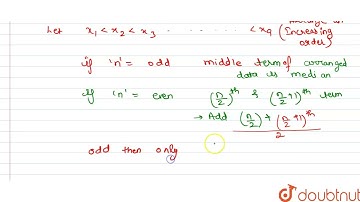 Let x₁ < x₂ < x₃ · · · · · · · < x₉ (Increasing order)
if 'n' = odd middle term of arranged data is median
If 'n' = even (n/2)ᵗʰ & (n/2 +1)ᵗʰ term
→ Add (n/2) + (n/2 +1)ᵗʰ
2
odd then only
doubtnut